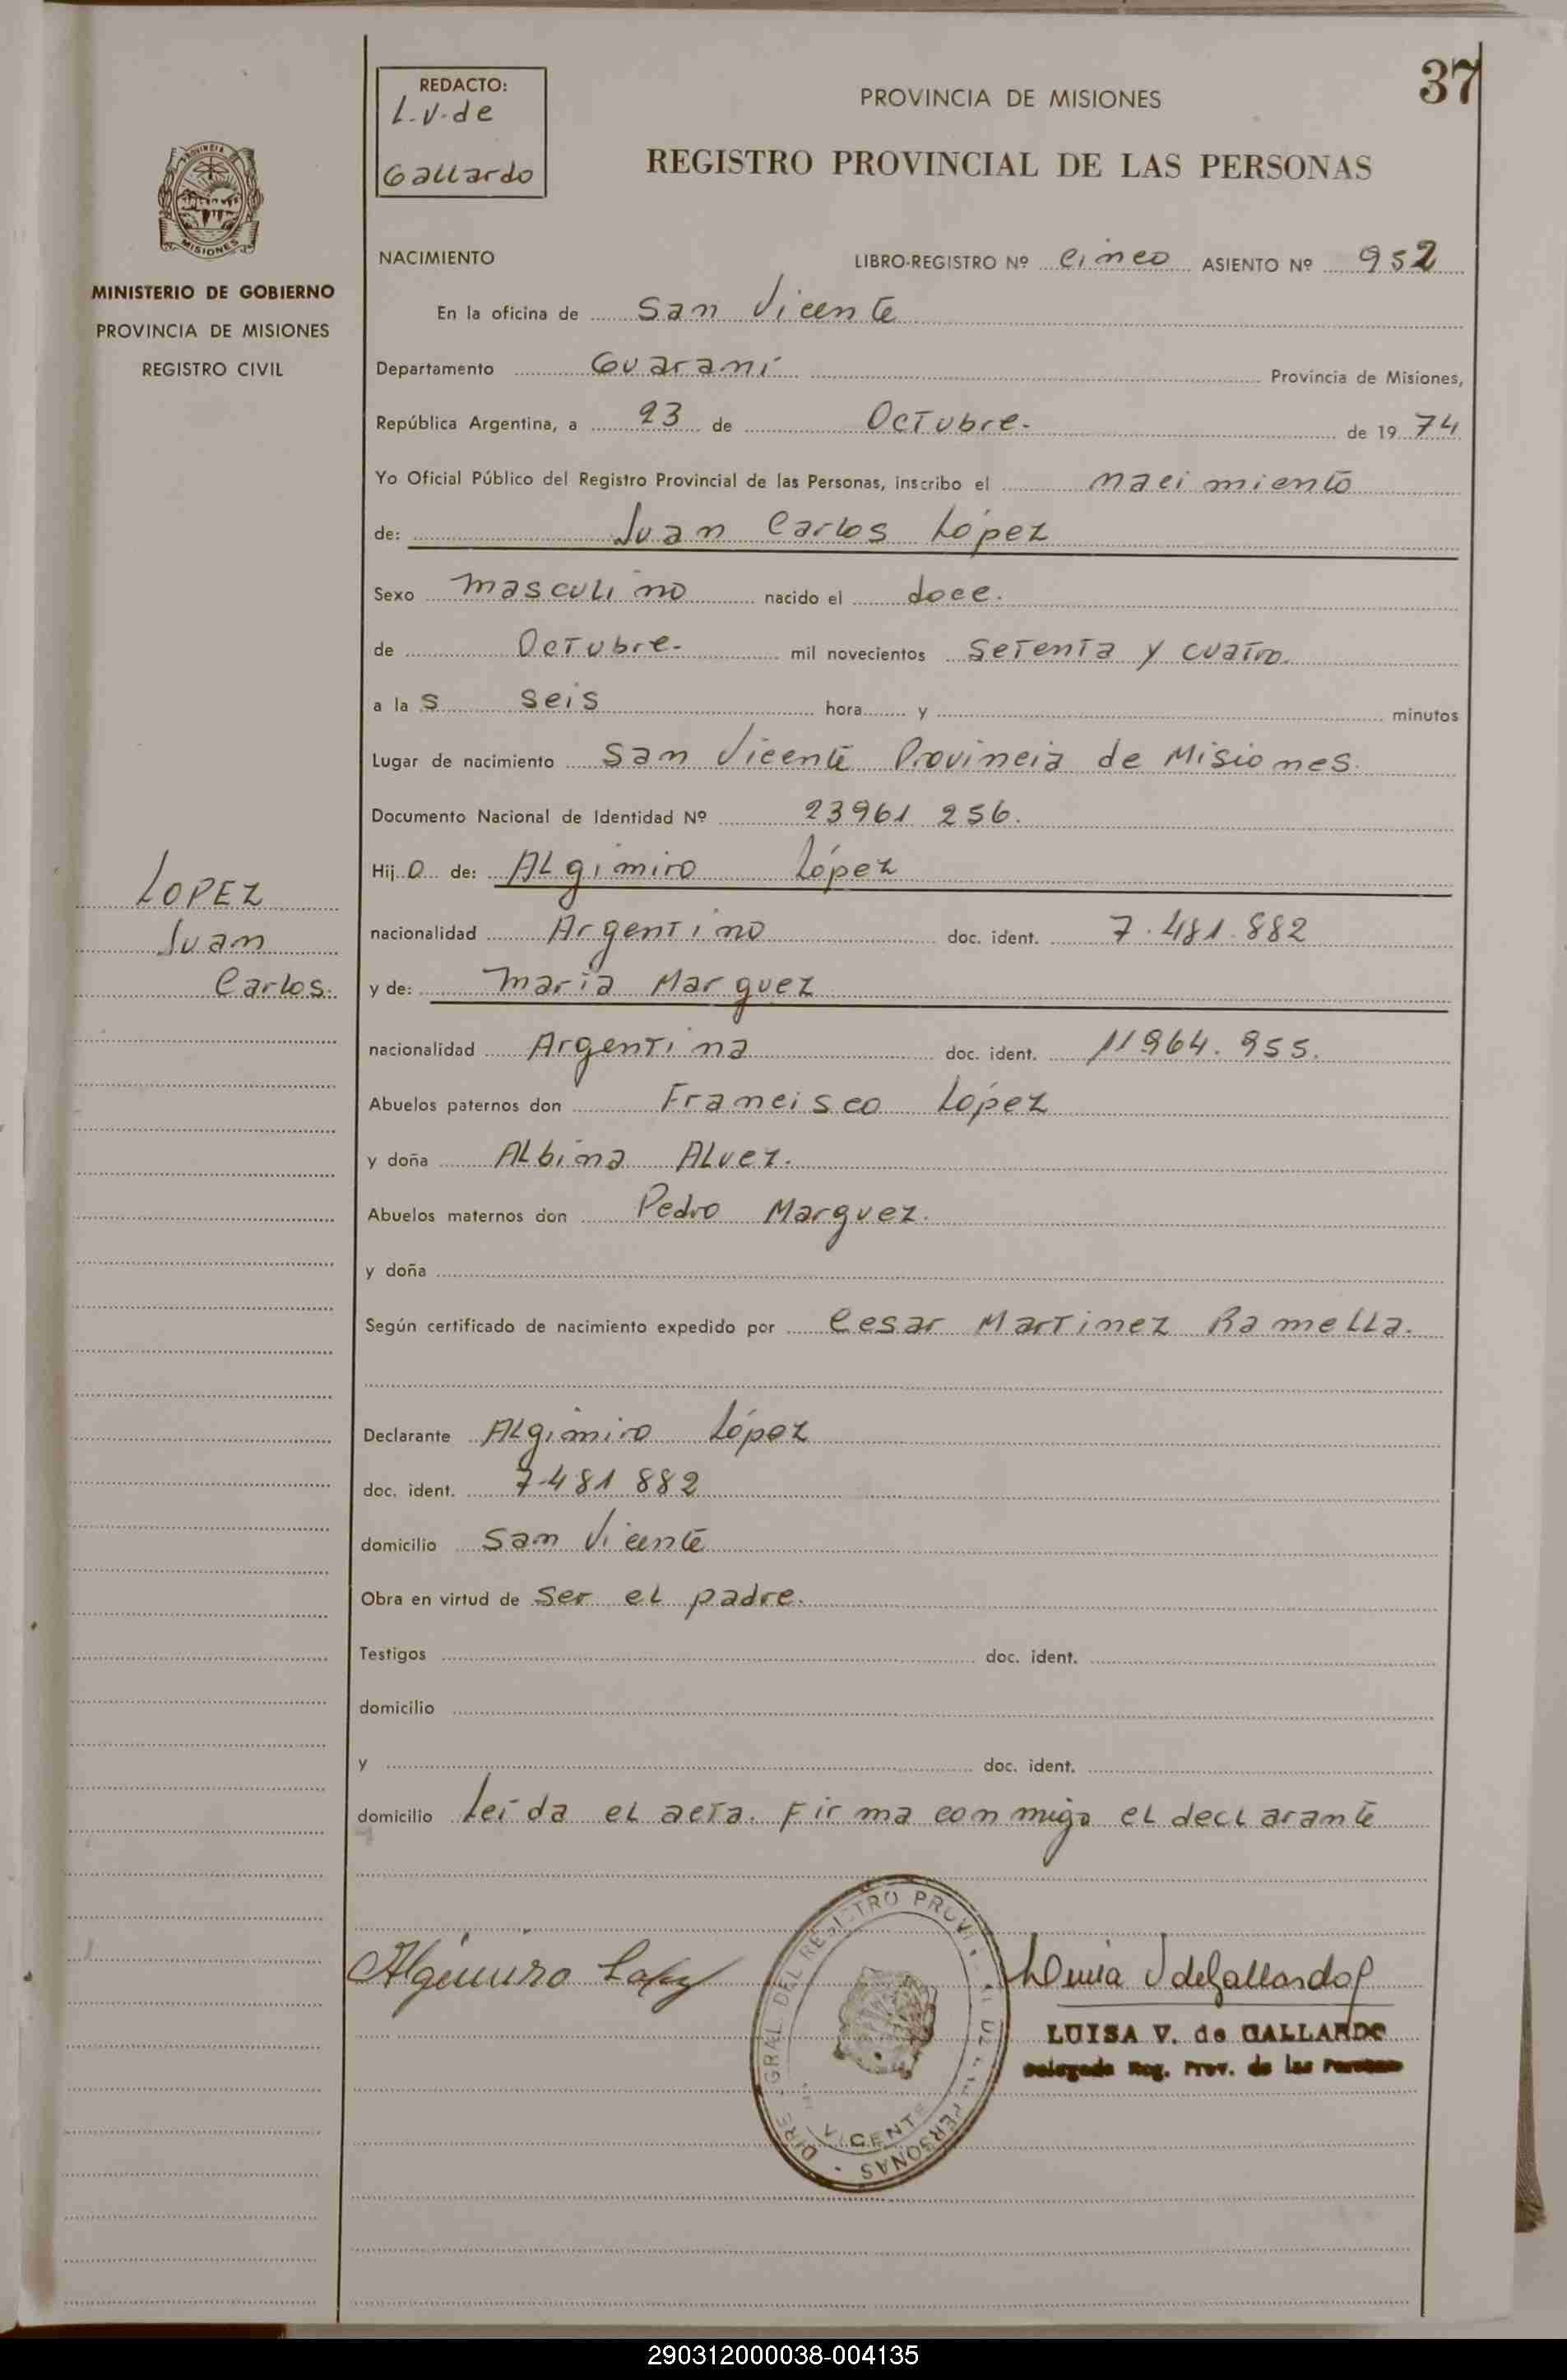 37
REDACTO:
L. V. de
Gallardo
PROVINCIA DE MISIONES
REGISTRO PROVINCIAL DE LAS PERSONAS
PROVINCIA DE
MISIONES
MINISTERIO DE GOBIERNO
PROVINCIA DE MISIONES
REGISTRO CIVIL
NACIMIENTO LIBRO-REGISTRO Nº cinco ASIENTO Nº 952
En la oficina de San Vicente
Departamento Guaraní Provincia de Misiones,
República Argentina, a 23 de Octubre. de 19 74
Yo Oficial Público del Registro Provincial de las Personas, inscribo el nacimiento
de: Juan Carlos López
Sexo masculino nacido el doce.
de Octubre. mil novecientos setenta y cuatro.
a la s seis hora y minutos
Lugar de nacimiento San Vicente Provincia de Misiones.
Documento Nacional de Identidad Nº 23961 256.
Hij o de: Algimiro López
LOPEZ
Juan
Carlos.
nacionalidad Argentino doc. ident. 7.481.882
y de: maria Marquez
nacionalidad Argentina doc. ident. 11964.955.
Abuelos paternos don Francisco López
y doña Albina Alvez.
Abuelos maternos don Pedro Marquez.
y doña
Según certificado de nacimiento expedido por Cesar Martinez Ramella.
Declarante Algimiro López
doc. ident. 7.481 882
domicilio San Vicente
Obra en virtud de ser el padre.
Testigos doc. ident.
domicilio
y doc. ident.
domicilio Leída el acta. Firma conmigo el declarante
Algimiro Lopez
Luisa V de Gallardo
LUISA V. de GALLARDO
Delegada Reg. Prov. de las Personas
GRAL. DEL REGISTRO PROVI
PERSONAS
VICENTE
290312000038-004135